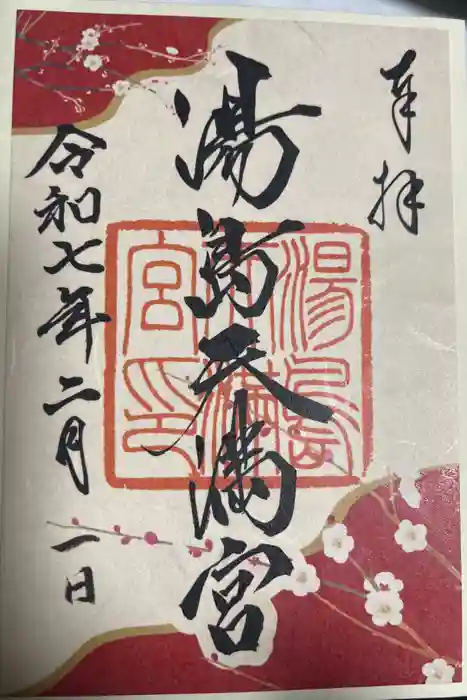 奉拝
湯島天満宮
令和七年二月一日
湯島
天満
宮印